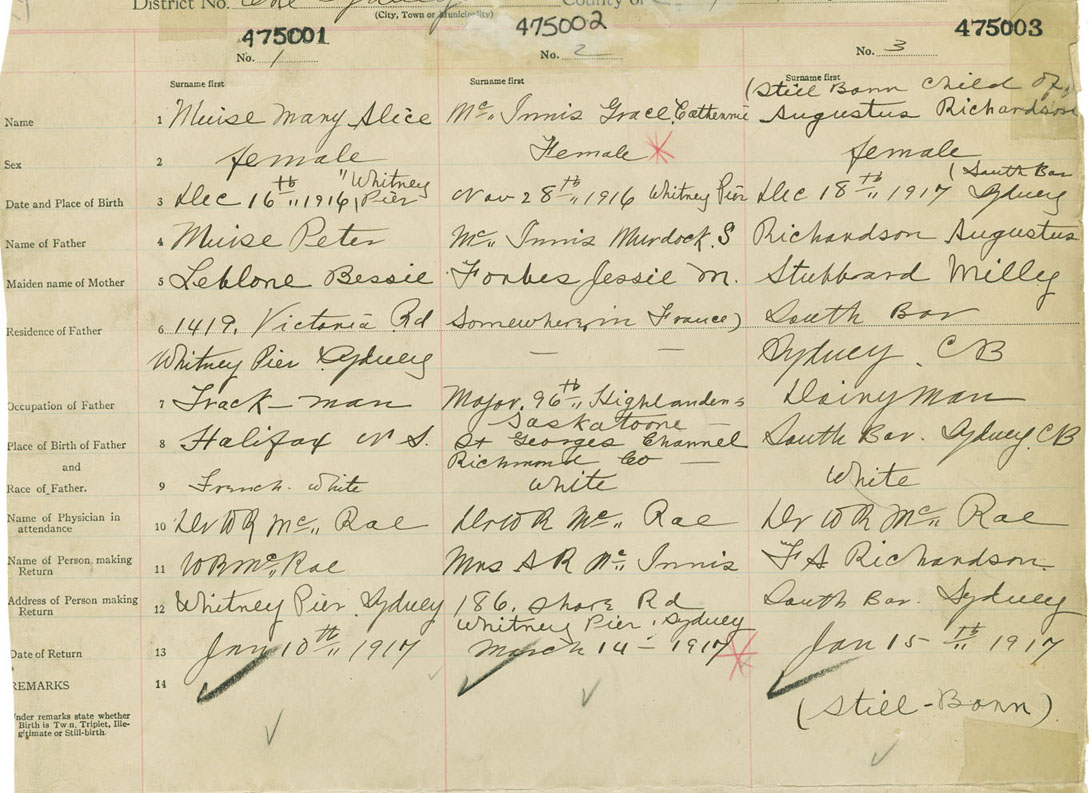 District No. One Sydney County of
(City, Town or Municipality)
475001 475002 475003
No. 1 No. 2 No. 3
Surname first Surname first Surname first
(Still Born Child of
Name 1 Muise Mary Alice Mc" Innis Grace Catherine Augustus Richardson
Sex 2 female Female female
"Whitney (South Bar
Date and Place of Birth 3 Dec 16th" 1916 Pier Nov 28th" 1916 Whitney Pier Dec 18th" 1917 Sydney
Name of Father 4 Muise Peter Mc" Innis Murdock. S Richardson Augustus
Maiden name of Mother 5 Leblone Bessie Forbes Jessie M. Stubbard Milley
Residence of Father 6 1419. Victoria Rd Somewhere in France) South Bar
Whitney Pier Sydney — — Sydney. CB
Occupation of Father 7 Track-man Major. 96th" Highlanders Dairyman
Saskatoone
Place of Birth of Father 8 Halifax N S. St Georges Channel South Bar. Sydney. CB
and Richmond Co —
Race of Father. 9 French. White White White
Name of Physician in attendance 10 Dr W R Mc" Rae Dr W R Mc" Rae Dr W R Mc" Rae
Name of Person making Return 11 W R Mc" Rae Mrs A R Mc" Innis F A Richardson
Address of Person making Return 12 Whitney Pier. Sydney 186. Shore Rd South Bar. Sydney
Whitney Pier. Sydney
Date of Return 13 Jan 10th" 1917 March 14 - 1917 Jan 15-th" 1917
REMARKS 14
(Still-Born)
Under remarks state whether
Birth is Twin, Triplet, Ille-
gitimate or Still-birth.